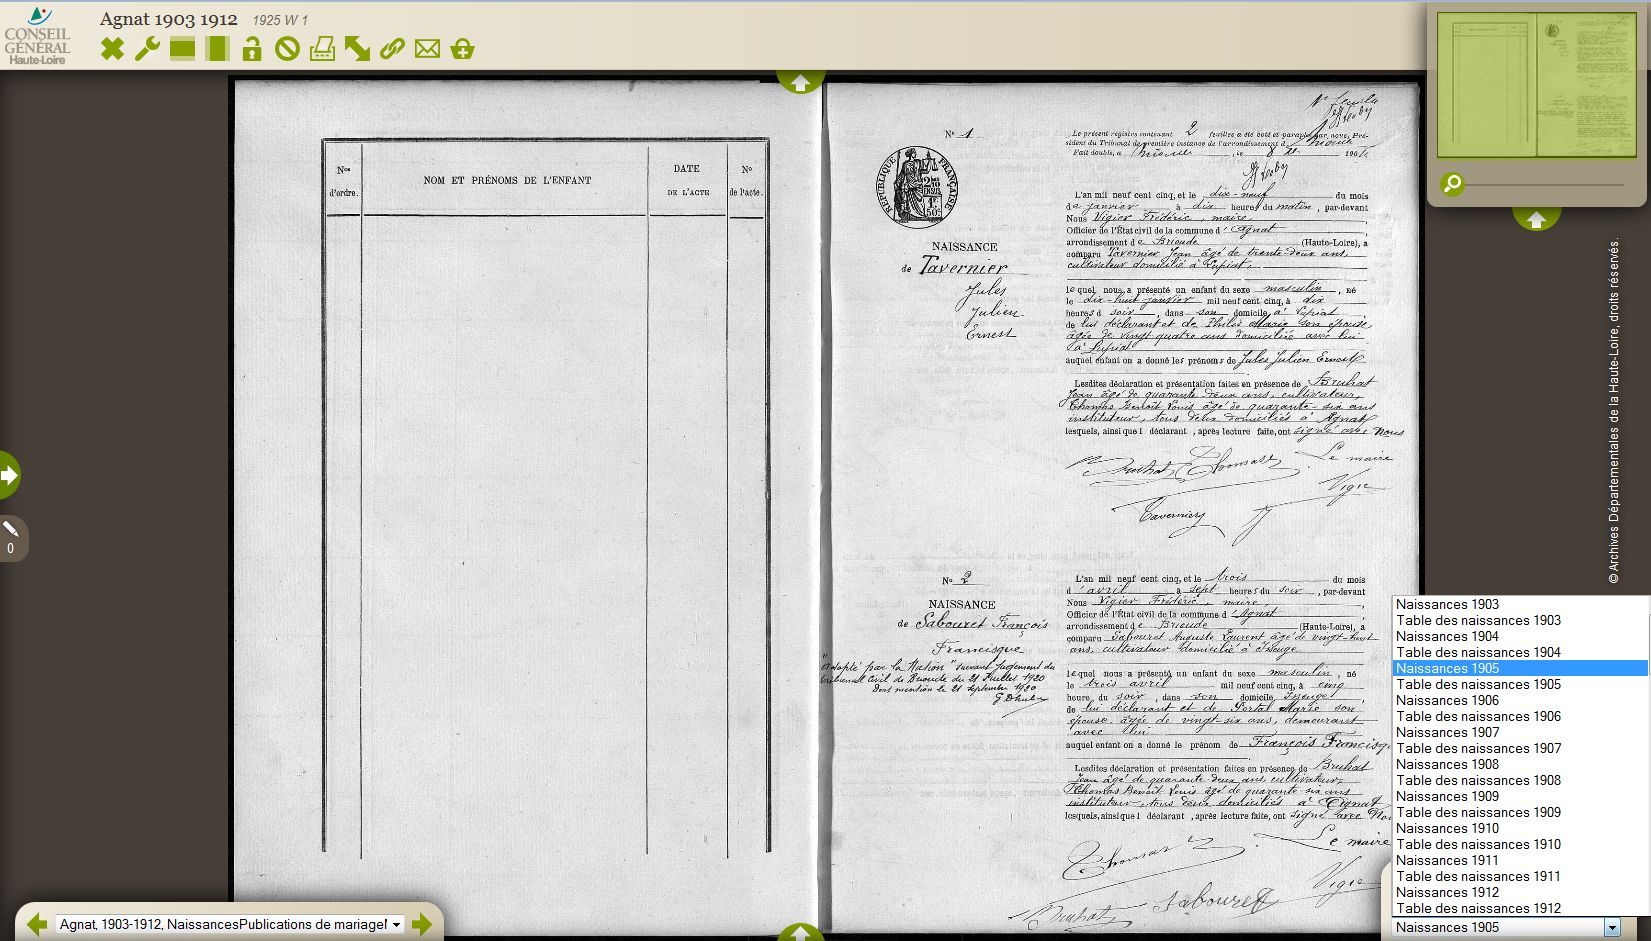 CONSEIL
GÉNÉRAL
Haute-Loire
Agnat 1903 1912 1925 W 1
Nos
d'ordre.
NOM ET PRÉNOMS DE L'ENFANT
DATE
DE L'ACTE
No
de l'acte.
No 1
RÉPUBLIQUE FRANÇAISE
NAISSANCE
de Tavernier
Jules
Julien
Ernest
Le présent registre contenant 2 feuilles a été coté et paraphé par nous, Pré-
sident du Tribunal de première instance de l'arrondissement d
Fait double, à Brioude, le 190
L'an mil neuf cent cinq, et le dix-neuf du mois
de janvier à dix heures du matin, par-devant
Nous Vigier Frédéric, maire,
Officier de l'État civil de la commune d'Agnat
arrondissement de Brioude (Haute-Loire), a
comparu Tavernier Jean âgé de trente-deux ans,
cultivateur domicilié à Lupiat,
lequel nous a présenté un enfant du sexe masculin, né
le dix-huit janvier mil neuf cent cinq, à dix
heures d soir, dans son domicile à Lupiat
de lui déclarant et de Philis Marie son épouse,
âgée de vingt quatre ans domiciliée avec lui
à Lupiat
auquel enfant on a donné les prénoms de Jules Julien Ernest
Lesdites déclaration et présentation faites en présence de Bruhat
Jean âgé de quarante deux ans, cultivateur,
Thomas Benoît Louis âgé de quarante-six ans
instituteur, tous deux domiciliés à Agnat
lesquels, ainsi que l déclarant, après lecture faite, ont signé avec Nous
Bruhat Thomas Le maire
Vigier
Tavernier
No 2
NAISSANCE
de Sabouret François
Francisque
"adopté par la Nation" suivant jugement du
tribunal Civil de Brioude du 21 Juillet 1920
Dont mention le 21 Septembre 1920
L'an mil neuf cent cinq, et le trois du mois
d'avril à sept heures du soir, par-devant
Nous Vigier Frédéric, maire,
Officier de l'État civil de la commune d'Agnat
arrondissement de Brioude (Haute-Loire), a
comparu Sabouret Auguste Laurent âgé de vingt-huit
ans, cultivateur domicilié à Iseuge
lequel nous a présenté un enfant du sexe masculin, né
le trois avril mil neuf cent cinq, à cinq
heures du soir, dans son domicile Iseuge
de lui déclarant et de Portal Marie son
épouse, âgée de vingt-six ans, demeurant
avec lui
auquel enfant on a donné le prénom de François Francisq
Lesdites déclaration et présentation faites en présence de Bruhat
Jean âgé de quarante-deux ans, cultivateur,
Thomas Benoît Louis âgé de quarante-six ans
instituteur, tous deux domiciliés à Agnat
lesquels, ainsi que l déclarant, après lecture faite, ont signé avec Nou
Thomas Le maire
Vigier
Bruhat Sabouret
© Archives Départementales de la Haute-Loire, droits réservés.
0
Naissances 1903
Table des naissances 1903
Naissances 1904
Table des naissances 1904
Naissances 1905
Table des naissances 1905
Naissances 1906
Table des naissances 1906
Naissances 1907
Table des naissances 1907
Naissances 1908
Table des naissances 1908
Naissances 1909
Table des naissances 1909
Naissances 1910
Table des naissances 1910
Naissances 1911
Table des naissances 1911
Naissances 1912
Table des naissances 1912
Naissances 1905
Agnat, 1903-1912, NaissancesPublications de mariage